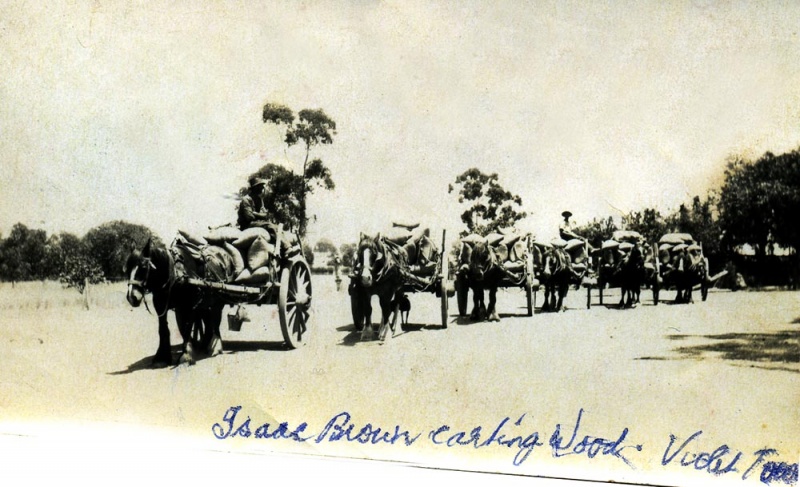 Isaac Brown carting Wood. Violet Town